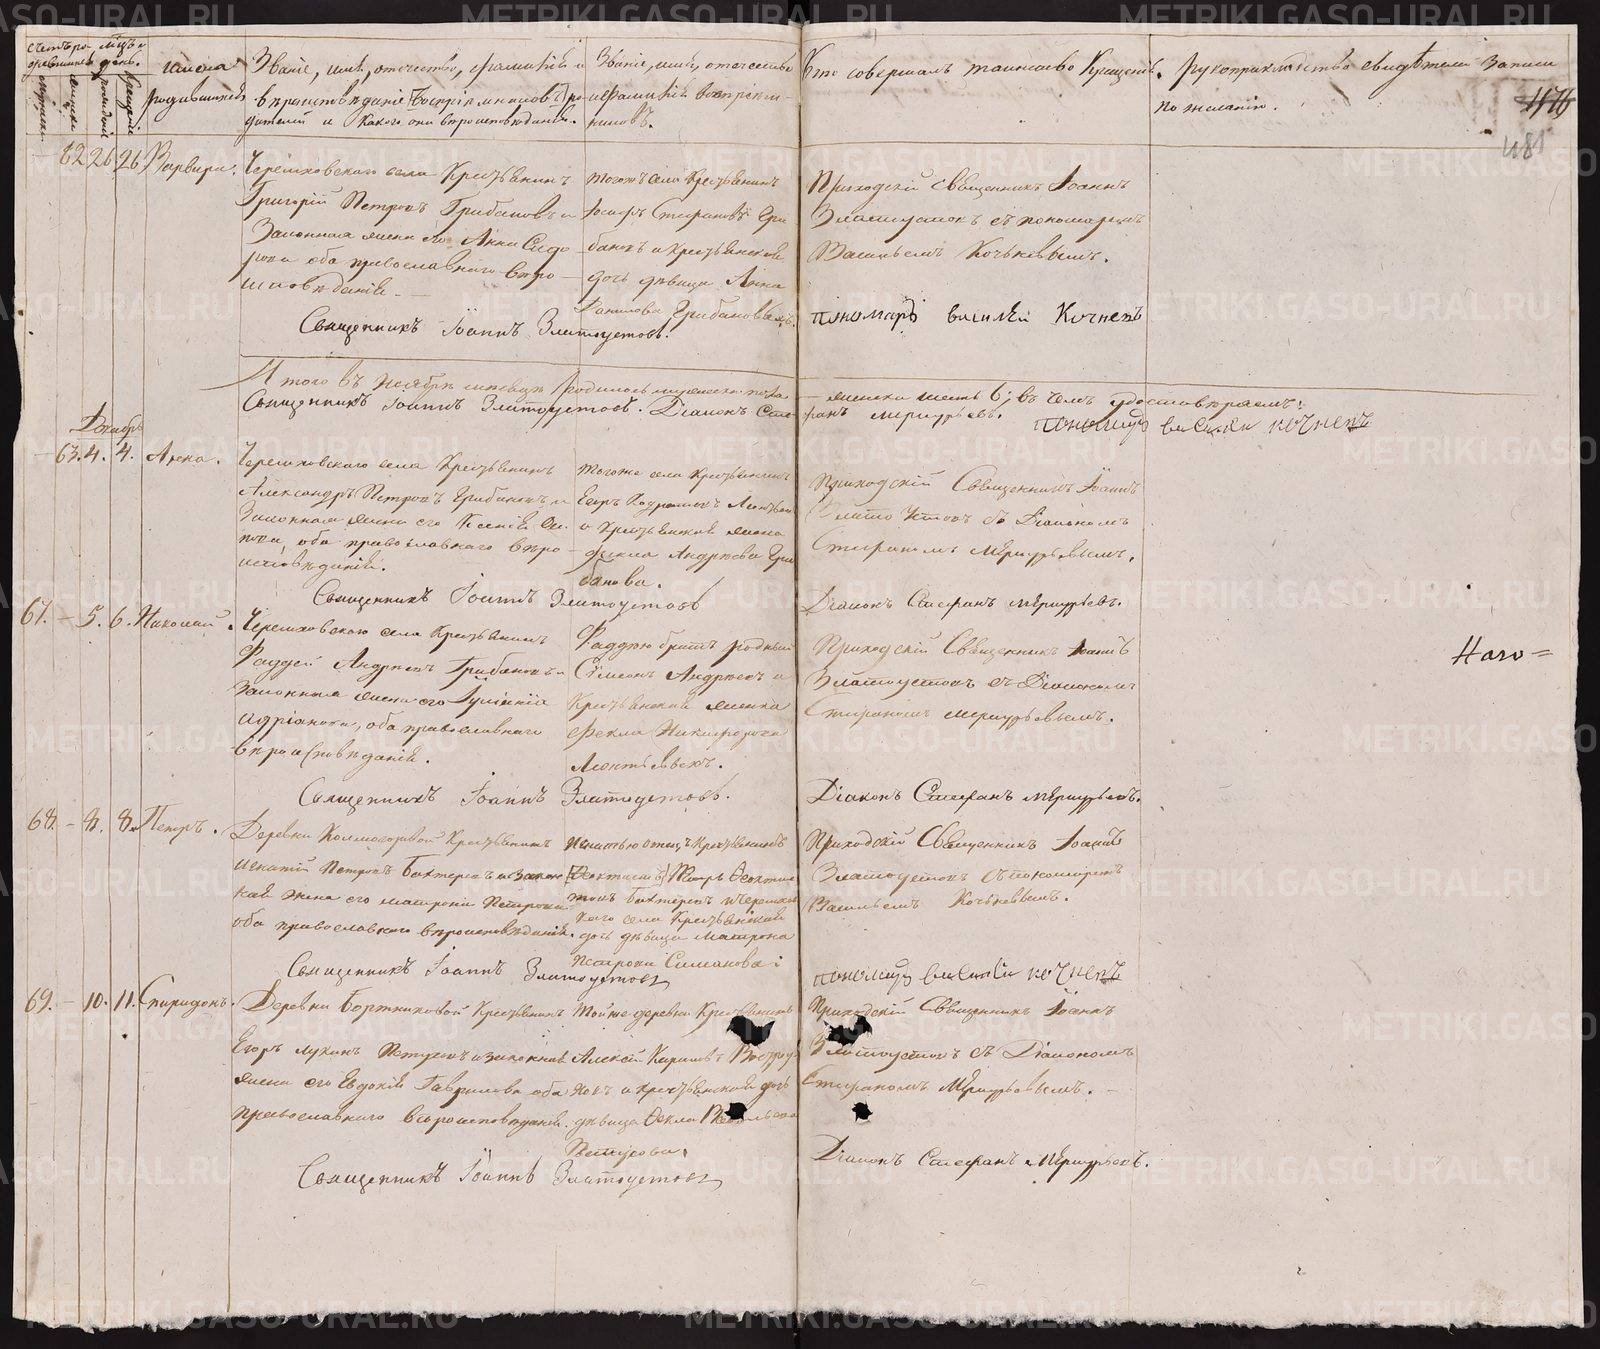 METRIKI.GASO-URAL.RU
Счетъ ро- Мѣсяцъ и
дившихся день.
мужеска
женска
рожденія
крещенія
имена
родившихся
Званіе, имя, отечество, фамилія и
вѣроисповѣданіе [воспріемниковъ] ро-
дителей и какого они вѣроисповѣданія.
Званіе, имя, отечество
и фамилія воспріем-
никовъ.
Кто совершалъ таинство Крещенія.
Рукоприкладство свидѣтелей записи
по желанію.
476
481
62 26 26 Варвара.
Черемховскаго села Крестьянинъ
Григорій Петровъ Грибановъ и
Законная жена его Анна Сидо-
рова оба православнаго вѣро-
исповѣданія.
тогожъ села Крестьянинъ
Іосифъ Стефановъ Гри-
бановъ и Крестьянская
дочь дѣвица Анна
Данилова Грибановыхъ.
Приходскій Священникъ Іоаннъ
Златоустовъ съ пономаремъ
Васильемъ Кочневымъ.
Священникъ Іоаннъ Златоустовъ.
пономарь василей Кочневъ
Итого въ Ноябрѣ мѣсяцѣ родилось мужеска пола
женска шесть 6; въ чемъ удостовѣряемъ:
Священникъ Іоаннъ Златоустовъ. Діаконъ Сте-
фанъ меркурьевъ.
пономарь василей кочневъ
Декабрь
63. 4. 4. Анна.
Черемховскаго села Крестьянинъ
Александръ Петровъ Грибановъ и
Законная жена его Ксенія
оба православнаго вѣро-
исповѣданія.
тогоже села Крестьянинъ
Егоръ
и Крестьянская жена
Фекла Андреева Гри-
банова.
Приходскій Священникъ Іоаннъ
Златоустовъ съ Діакономъ
Стефаномъ Меркурьевымъ.
Священникъ Іоаннъ Златоустовъ
Діаконъ Стефанъ меркурьевъ.
67. – 5. 6. Николай.
Черемховскаго села Крестьянинъ
Фаддей Андреевъ Грибановъ и
законная жена его
Адріанова, оба православнаго
вѣроисповѣданія.
Фаддею братъ родный
Симеонъ Андреевъ и
Крестьянская женка
Фекла Никифорова
Леонтьевыхъ.
Приходскій Священникъ Іоаннъ
Златоустовъ съ Діакономъ
Стефаномъ меркурьевымъ.
Наго=
Священникъ Іоаннъ Златоустовъ.
Діаконъ Стефанъ меркурьевъ.
68. – 8. 8. Петръ.
Деревни Колмогоровой Крестьянинъ
Игнатій Петровъ Бахтеревъ и закон-
ная жена его матрона Петрова
оба православнаго вѣроисповѣданія.
Игнатью отецъ Крестьянинъ
[Феоктистъ] Петръ Феоктис-
товъ Бахтеревъ и Черемхов-
скаго села Крестьянская
дочь дѣвица матрона
Петрова Симанова;
Приходскій Священникъ Іоаннъ
Златоустовъ съ пономаремъ
Васильемъ Кочневымъ.
Священникъ Іоаннъ Златоустовъ
пономарь василей кочневъ
69. – 10. 11. Спиридонъ.
Деревни Бортниковой Крестьянинъ
Егоръ лукинъ Петуховъ и законная
жена его Евдокія Гаврилова оба
православнаго вѣроисповѣданія.
Тойже деревни Крестьянинъ
Алексѣй
и крестьянская дочь
дѣвица Фекла
Петухова.
Приходскій Священникъ Іоаннъ
Златоустовъ съ Діакономъ
Стефаномъ Меркурьевымъ.
Священникъ Іоаннъ Златоустовъ
Діаконъ Стефанъ Меркурьевъ.